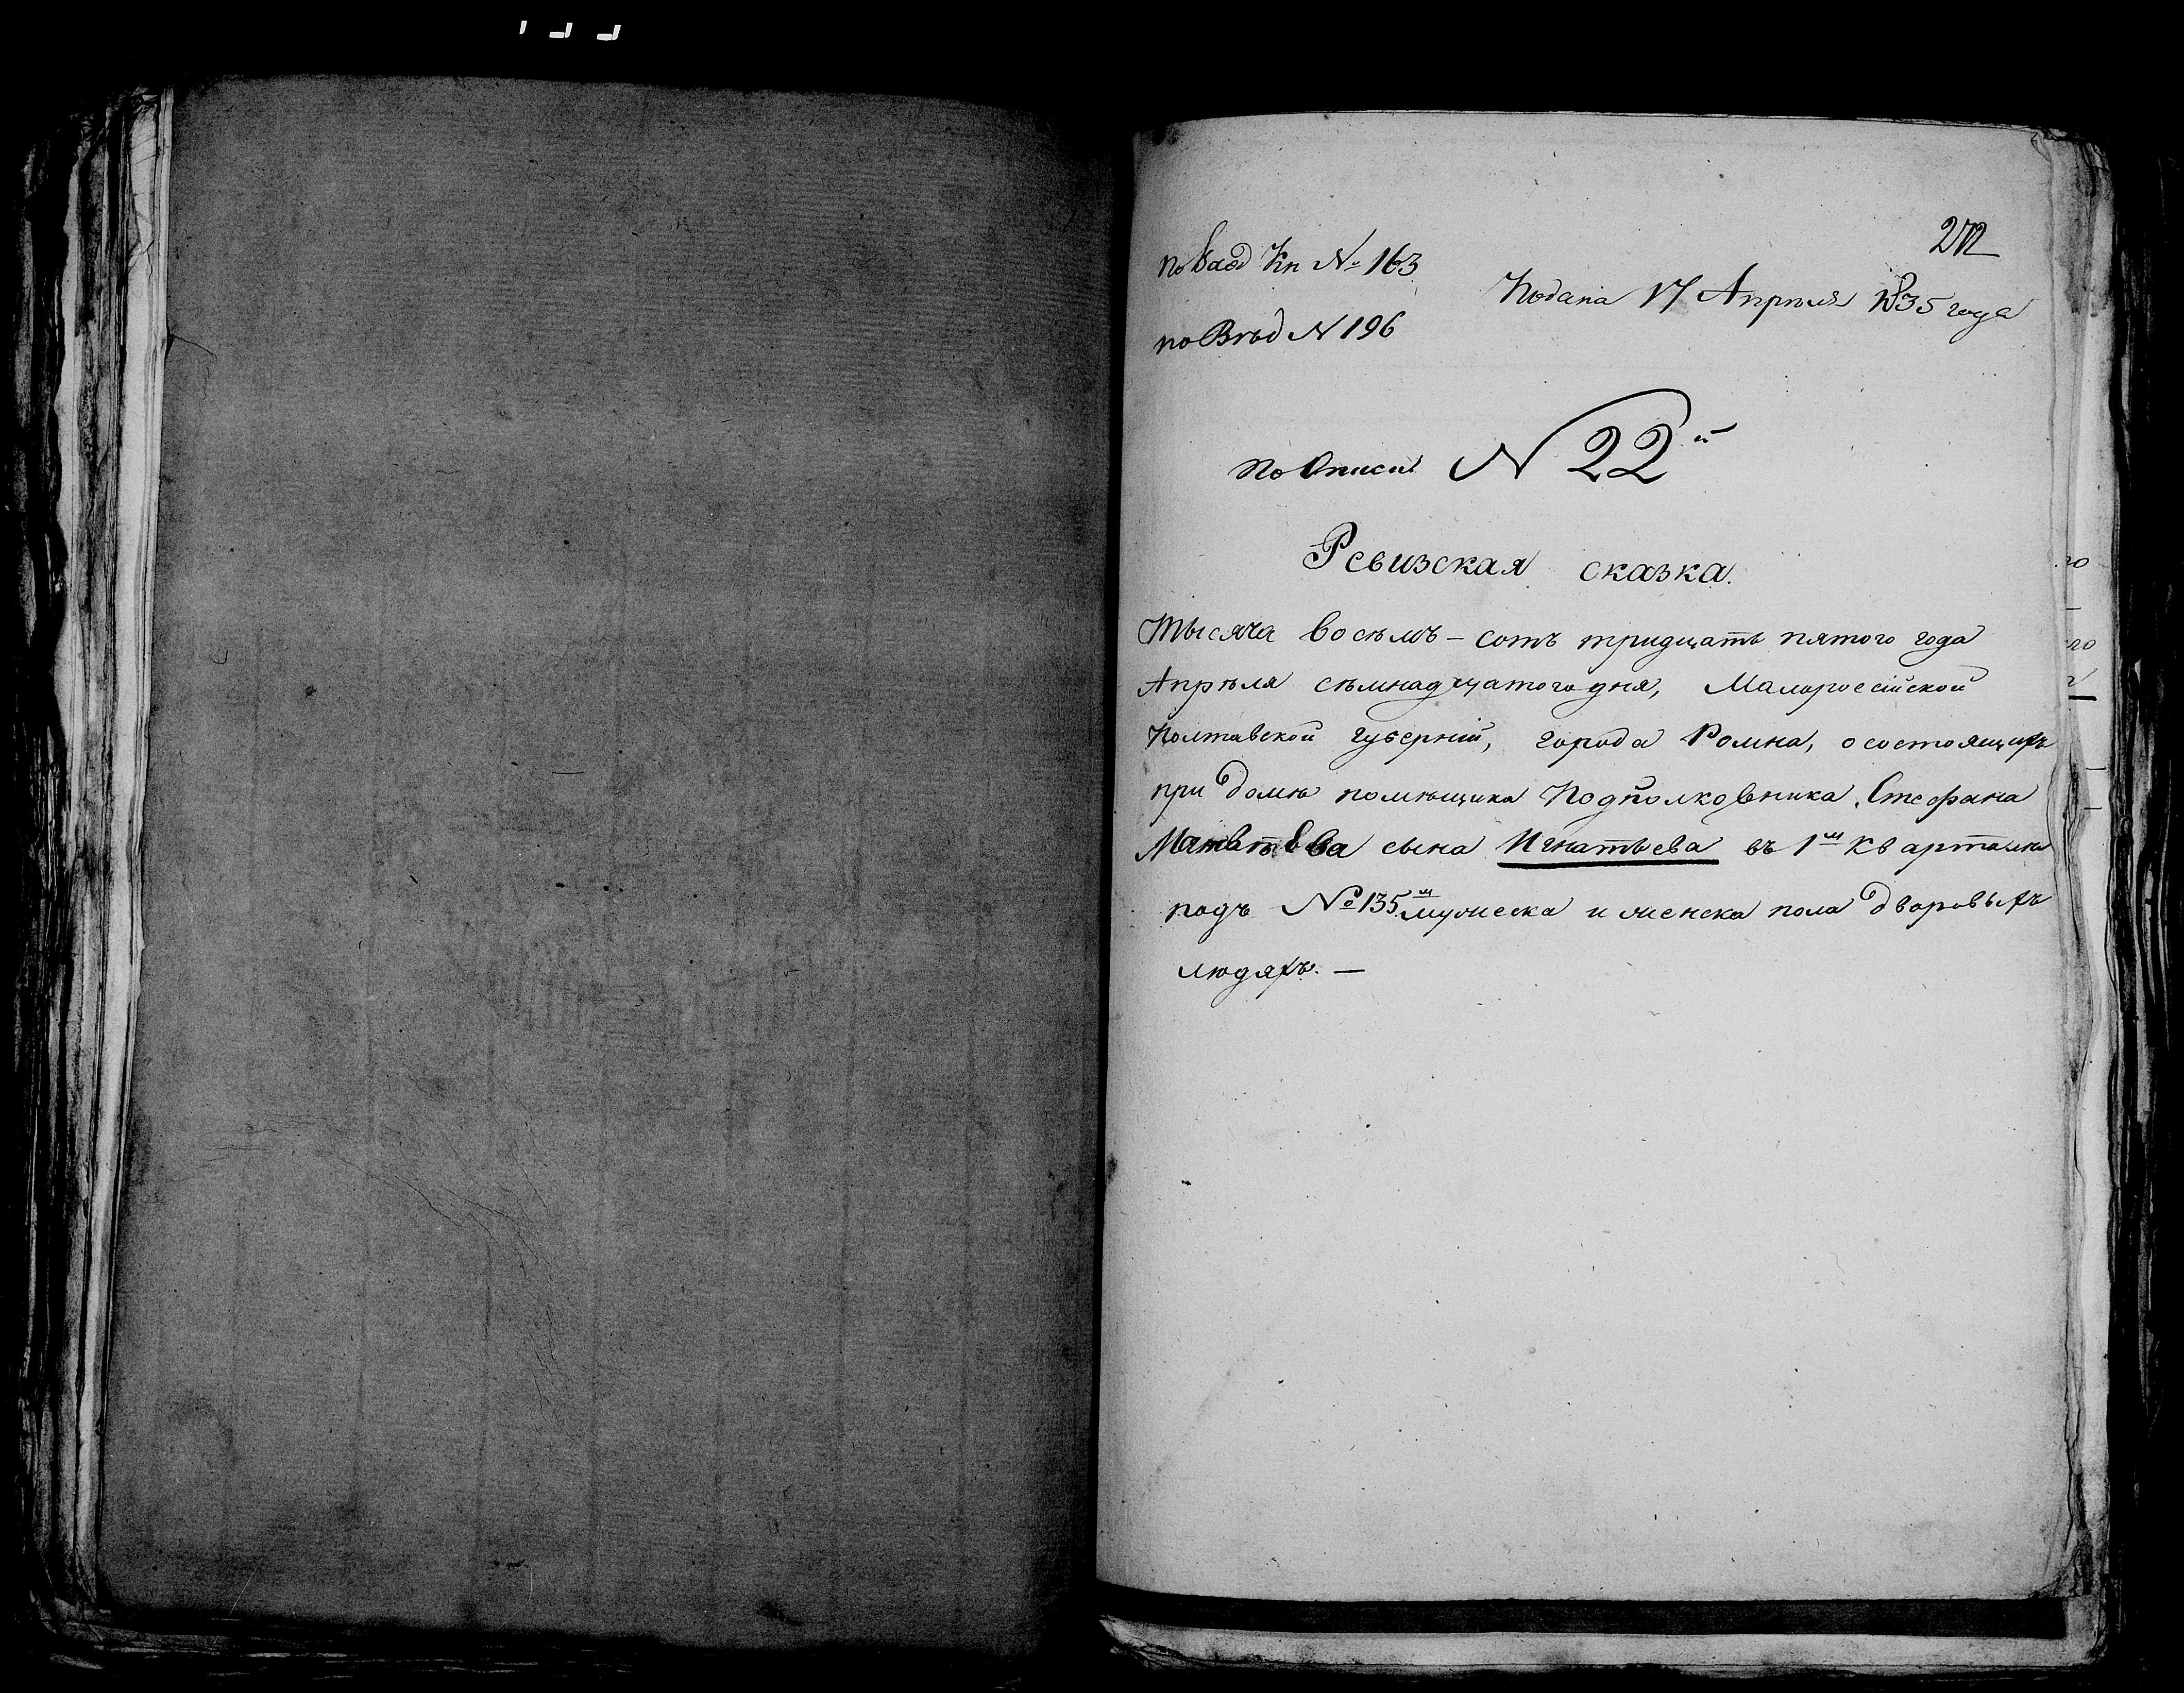 272
Кн № 163
Подана 17 Апрѣля 1835 года
по Вѣд N 196
по Описи N 22й
Ревизская сказка.
Тысяча восѣмъ-сотъ тридцать пятого года
Апрѣля сѣмнадцатого дня, Малороссійской
Полтавской губерніи, города Ромна, о состоящихъ
при домѣ помѣщика Подполковника Стефана
Матвѣева сына Игнатьева въ 1м кварталѣ
подъ № 135м мужеска и женска пола дворовыхъ
людяхъ. —